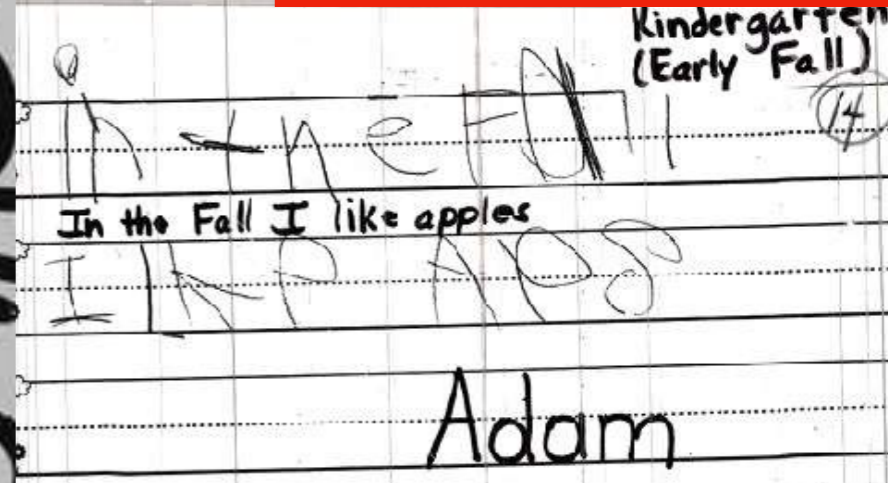 Kindergarten
(Early Fall)
14
in the Fall
In the Fall I like apples
I lKP APS
Adam